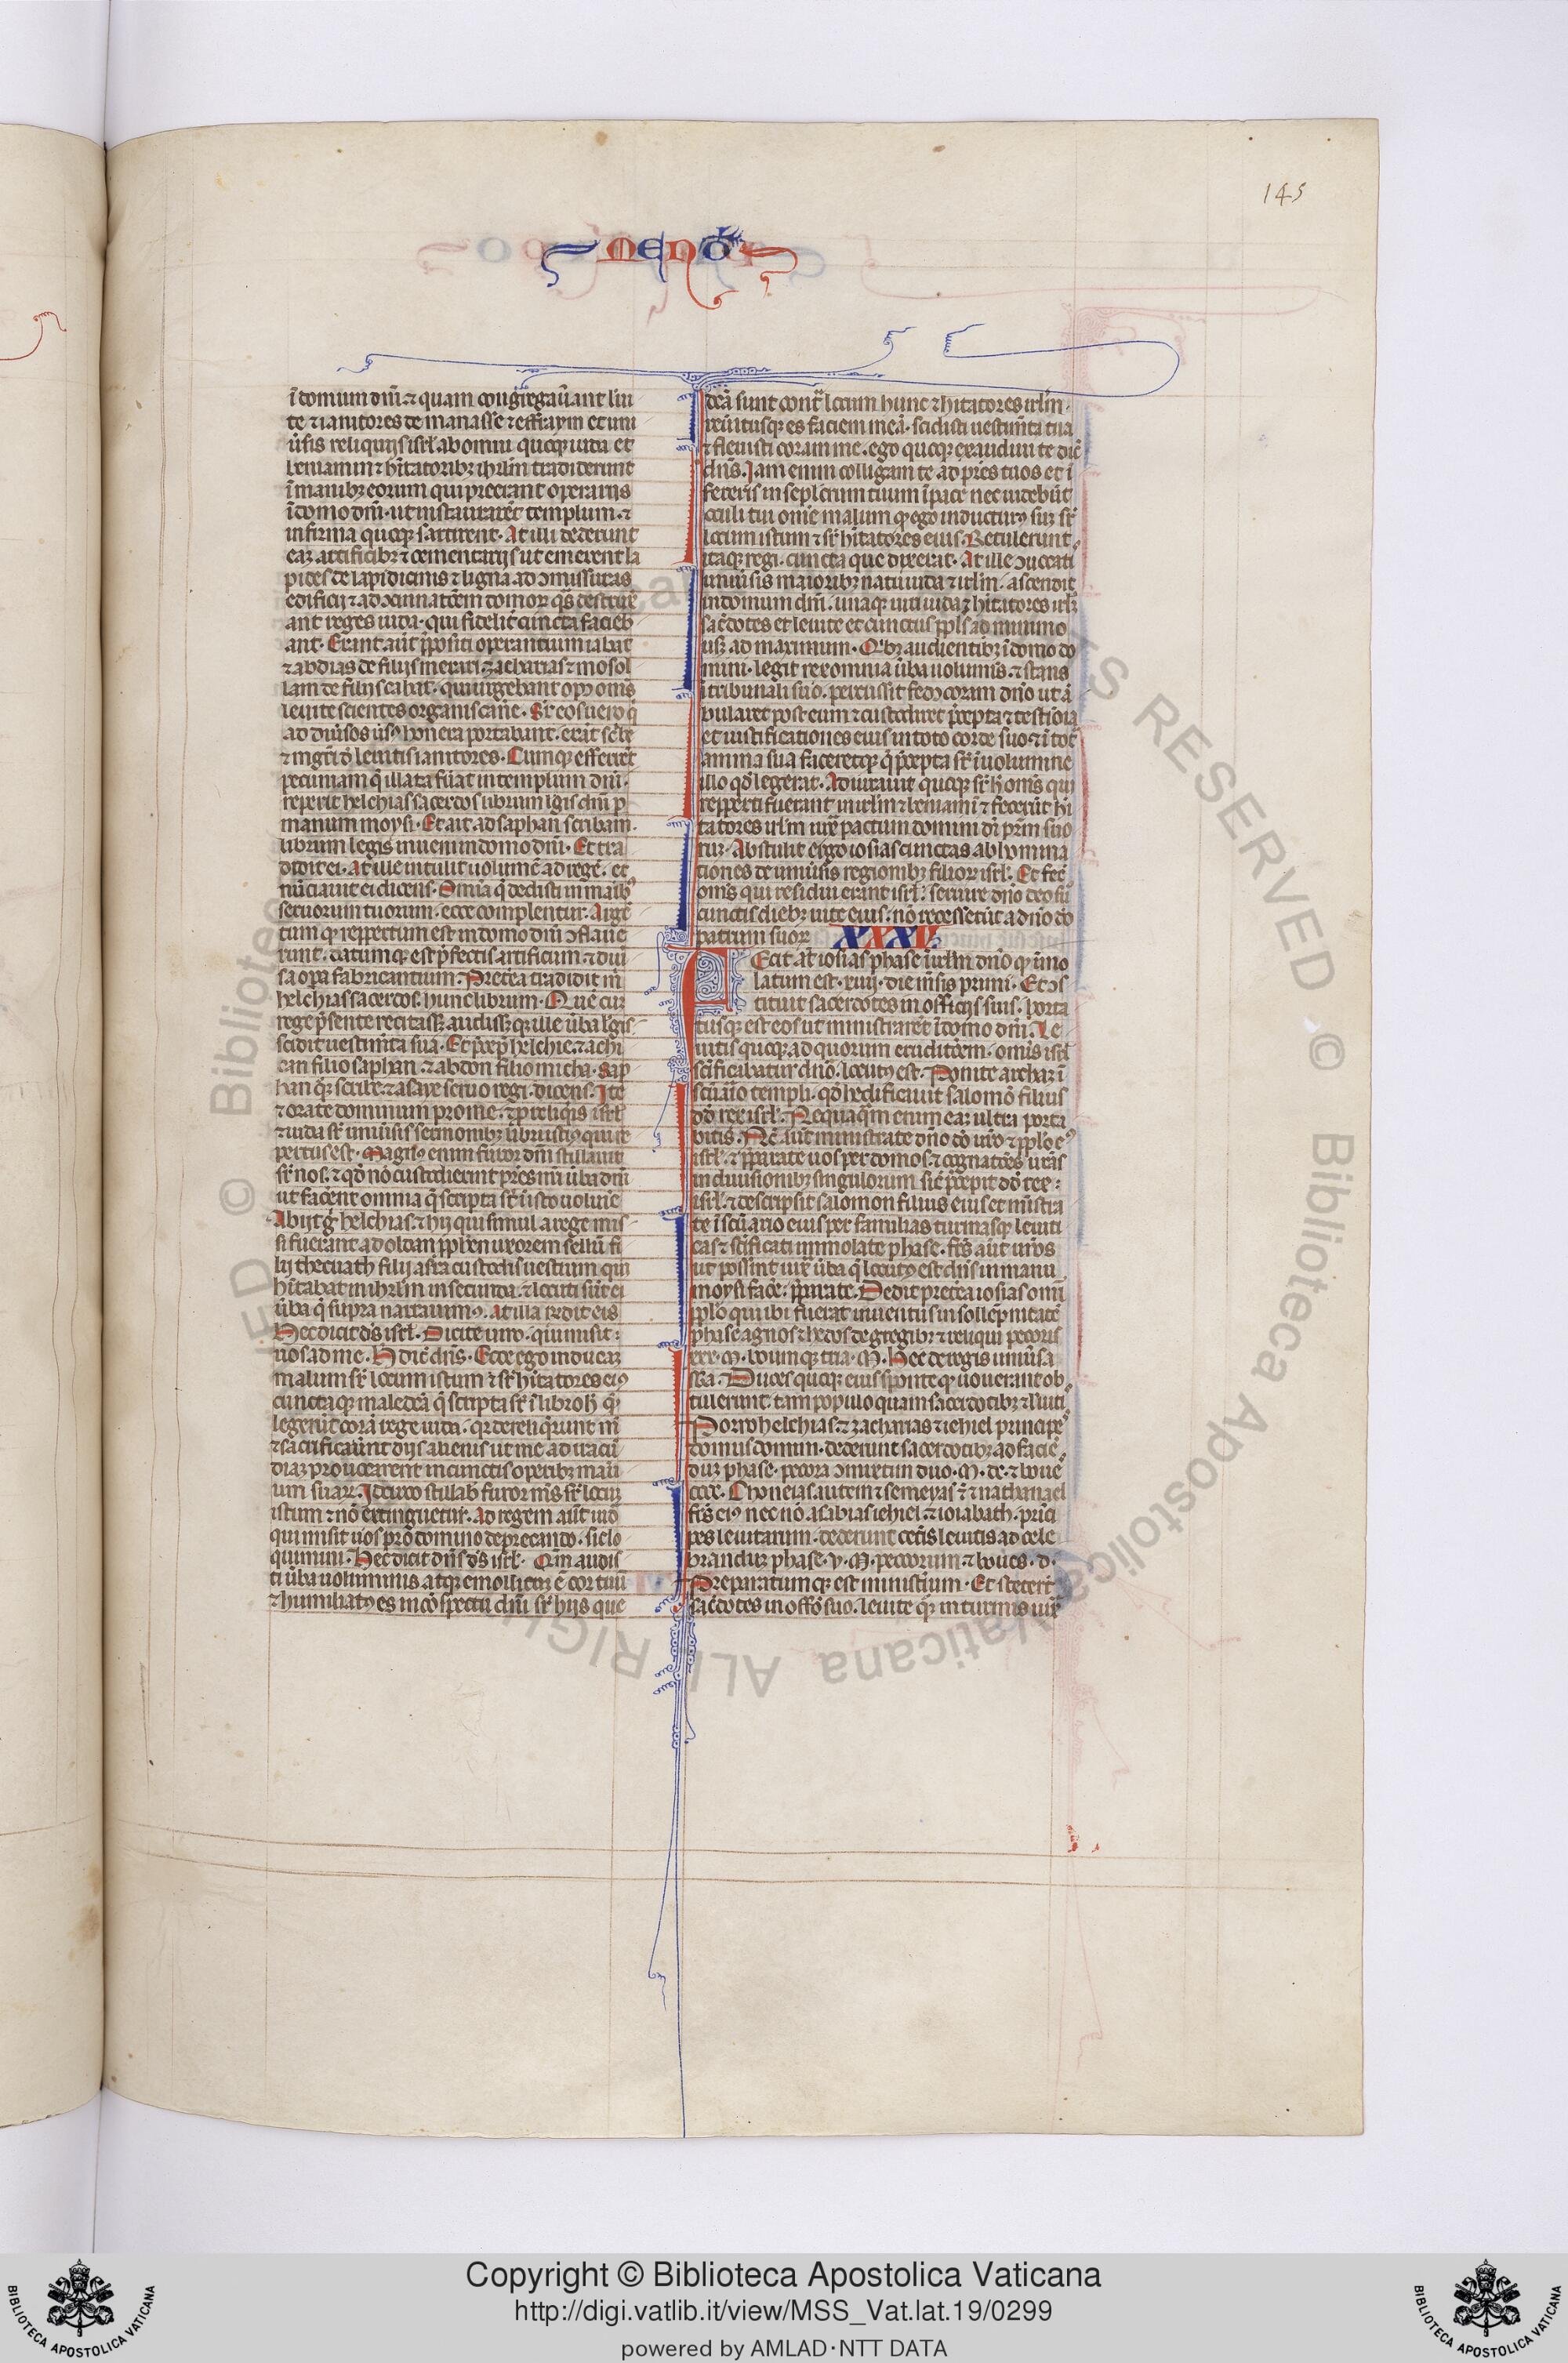 145
MENŌ
ī domum dn̄i ⁊ quam congregau̅ant leui
te ⁊ ianitores de manasse ⁊ effraym et uni
u̅sis reliquijs isrl̄ ab omni quoqꝫ iuda et
beniamin ⁊ hītatoribꝫ ihrl̄m tradiderunt
ī manibꝫ eorum qui preerant operarijs
ī domo dn̄i· ut instaurarēt templum· ⁊
infirma queqꝫ sartirent· At illi dederunt
eaꝫ artificibꝫ ⁊ cementarijs ut emerent la
pides de lapidicinis ⁊ ligna ad ɔmissuras
edificij ⁊ ad ɔtinnatōem domoꝝ qͣs destrux̄
ant reges iuda· qui fidelit̄ cuncta facieb
ant· Erant aūt p̄positi operantium iabat
⁊ abdias de filijs merari· zacharias ⁊ mosol
lam de filijs cahat· qui urgebant opꝰ om̄s
leuite scientes organis can̄e· Sr̄ eos uero q̇
ad diu̅sos usꝰ honera portabant· erāt sc̄be
⁊ mgr̄i d̄ leuitis ianitores· Cumqꝫ efferrēt
pecuniam q̄ illata fu̅at in templum dn̄i·
reperit helchias sacerdos librum lg̅is dn̄i p̄
manum moysi· Et ait ad saphan scribam·
librum legis inueni in domo dn̄i· Et tra
didit ei· At ille intulit uolumē ad regē· et
nūciauit ei dicens· Omīa q̄ dedisti in manibꝰ
seruorum tuorum· ecce complentur· Argē
tum qꝫ reppertum est in domo dn̄i ɔflaue
runt· datumqꝫ est p̄fectis artificum ⁊ diu̅
sa opa fabricantium· Pretea tradidit m̄
helchias sacerdos hunc librum· Que cuꝫ
rege p̄sente recitasꝫ audissꝫ qꝫ ille u̅ba leḡis
scidit uestim̄ta sua· Et p̄cep̄ helchie ⁊ achi
can filio saphan· ⁊ abdon filio micha· Sap
han qꝫ scribe ⁊ asaye seruo regi· dicens· Ite
⁊ orate dominum pro me· ⁊ p̄ reliqͥis isrl̄
⁊ iuda sr̄ uniu̅sis sermonibꝫ libri istiꝰ qui re
pertus est· Magnꝰ enim furor dn̄i stillauit
sr̄ nos· ⁊ qd̄ nō custodierint pr̄es nr̄i u̅ba dn̄i
ut facent omnia q̄ scripta st̄ ī isto uolumīe
Abijt ġ helchias ⁊ hij qui simul a rege mis
si fuerant ad oldan pph̄en uxorem sellū fi
lij thecuath filij asra custodis uestium qui
hītabat in ihrl̄m in secunda· ⁊ locuti sūt ei
u̅ba q̄ supra narrauimꝰ· At illa rn̄dit eis
Hec dicit ds̄ isrl̄· Dicite uiro· qui misit·
uos ad me· H̄ dic̄ dn̄s· Ecce ego inducaꝫ
malum sr̄ locum istum ⁊ sr̄ hītatores eiꝰ
cunctaqꝫ maledc̄a q̄ scripta st̄ ī libro h̄ qͣ
legerūt corā rege iuda· qꝛ dereliq̇runt m̄
⁊ sacrificauūt dijs alienis ut me ad iracū
diaꝫ prouocarent in cunctis operibꝫ manu
um suaꝝ· Idcirco stillab̄ furor ms̄ sr̄ locuꝫ
istum ⁊ nō extinguetur· Ad regem aūt iuda
qui misit uos pro domino deprecando· sic lo
quimini· Hec dicit dn̄s ds̄ isrl̄· Qm̄ audis
ti u̅ba uoluminis atqꝫ emollitū ē cor tuū
⁊ humiliatꝰ es in cōspectu dn̄i sr̄ hijs que
dc̄a sunt contͣ locum hunc ⁊ hītatores irl̄m·
reu̅itusqꝫ es faciem meā· scidisti uestim̄ta tua
⁊ fleuisti coram me· ego quoqꝫ exaudiui te dic̄
dn̄s· Iam enim colligam te ad pr̄es tuos et ī
fereris in seplc̄rum tuum ī pace nec uidebūt
oculi tui omne malum qꝫ ego inducturꝰ suꝫ sr̄
locum istum ⁊ sr̄ hītatores eius· Retulerunt
itaqꝫ regi· cuncta que dixerat· At ille ɔuocati
uniu̅sis maioribꝫ natu iuda ⁊ irl̄m· ascendit
in domum dn̄i· unaqꝫ uiri iuda ⁊ hītatores irl̄m
sac̄dotes et leuite et cunctus pp̄ls a minimo
usꝫ ad maximum· Qͥbꝫ audientibꝫ ī domo do
mini· legit rex omnia u̅ba uolumīs· ⁊ stans
ī tribunali suo· percussit fedꝰ coram dn̄o ut ā
bularet post eum ⁊ custodiret p̄cepta ⁊ testīoīa
et iustificationes eius in toto corde suo ⁊ ī tota
anima sua faceretqꝫ q̄ p̄cepta sr̄ ī uolumine
illo qd̄ legerat· Adiurauit quoqꝫ sr̄ h̄ om̄s qui
repperti fuerant in irl̄m ⁊ beniamī ⁊ fecerūt hī
tatores irl̄m iux̄ pactum domini dī pr̄m suo
rum· Abstulit ergo iosias cunctas abhomina
tiones de uniu̅sis regionibꝫ filioꝝ isrl̄· Et fec̄
om̄s qui residui erant isrl̄· seruire dn̄o deo suo
cunctis diebꝫ uite eius· nō recesserūt a dn̄o dō
patrum suoꝝ XXXV·
Fecit aūt iosias phase ī irl̄m dn̄o qꝫ īmo
latum est· xiiij· die mēsis primi· Et ɔs
tituit sacerdotes in officijs suis· horta
tusqꝫ est eos ut ministrarēt ī domo dn̄i· Le
uitis quoqꝫ ad quorum eruditōem· omīs isrl̄
sc̄ificabatur dn̄o· locutꝰ est· Ponite archaꝫ ī
sc̄uāio templi· qd̄ hedificauit salomō filius
dd̄ rex isrl̄· Nequaqͣm enim eaꝫ ultra porta
bitis· Nc̄ aūt ministrate dn̄o dō uro ⁊ pp̄lo eꝰ
isrl̄· ⁊ p̄parate uos per domos ⁊ cognatōes uras
in diuisionibꝫ singulorum· sic̄ p̄cepit dd̄ rex·
isrl̄· ⁊ descripsit salomon filius eius et ministra
te ī sc̄uario eius per familias turmasqꝫ leuiti
cas ⁊ sc̄ificati immolate phase· frēs aūt uros
ut possint iux̄ u̅ba q̄ locutꝰ est dn̄s in manu
moysi fac̄e· p̄parate· Dedit pretea iosias omī
pp̄lo qui ibi fuerat inuentus in sollēpnitate
phase agnos ⁊ hedos de gregibꝫ ⁊ reliqui pecoris
xxx· M· boum qꝫ tria· M· Hec de regis uniu̅sa
sba· Duces quoqꝫ eius sponte qꝫ uouerant ob
tulerunt· tam populo quam sacerdotibꝫ ⁊ leuiti
Porro helchias ⁊ zacharias ⁊ iehiel principes
domus domini· dederunt sacerdotibꝫ ad facien
duꝫ phase· pecora ɔmixtim duo· M· dc· ⁊ boues
ccc· Choneias autem ⁊ semeyas ⁊ nathanael
frēs eiꝰ nec nō asabias iehiel ⁊ iosabath· princi
pes leuitarum· dederunt cet̄is leuitis ad cele
branduꝫ phase· v· M· peccorum ⁊ boues· d·
Preparatumqꝫ est ministium· Et stecerūt
sac̄dotes in offō suo· leuite qꝫ in turmis iux̄
© Biblioteca Apostolica Vaticana ALL RIGHTS RESERVED
Copyright © Biblioteca Apostolica Vaticana
http://digi.vatlib.it/view/MSS_Vat.lat.19/0299
powered by AMLAD·NTT DATA
BIBLIOTECA APOSTOLICA VATICANA
BIBLIOTECA APOSTOLICA VATICANA